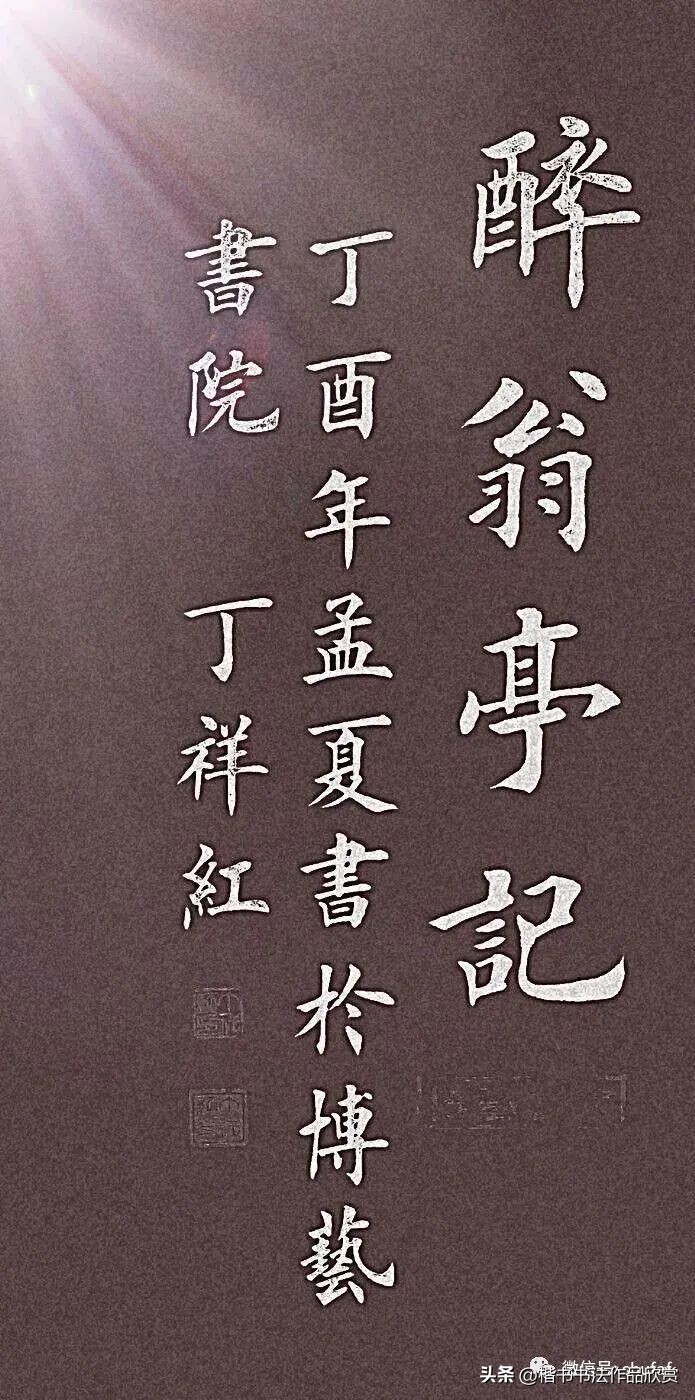 醉翁亭記
丁酉年孟夏書於博藝
書院 丁祥紅
微信号: shufaf
头条 @楷书书法作品欣赏